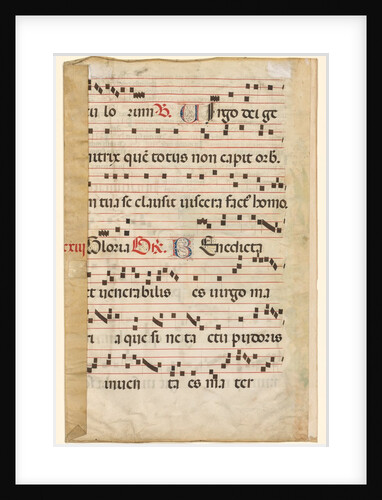 lo rinn R. Uirgo dei ge
nitrix quē totus non capit orb.
in tua se clausit uiscera fact' homo.
Gloria Benedicta
et uenerabilis es uirgo ma
ri a que si ne ta ctu pudoris
inuen ta es ma ter